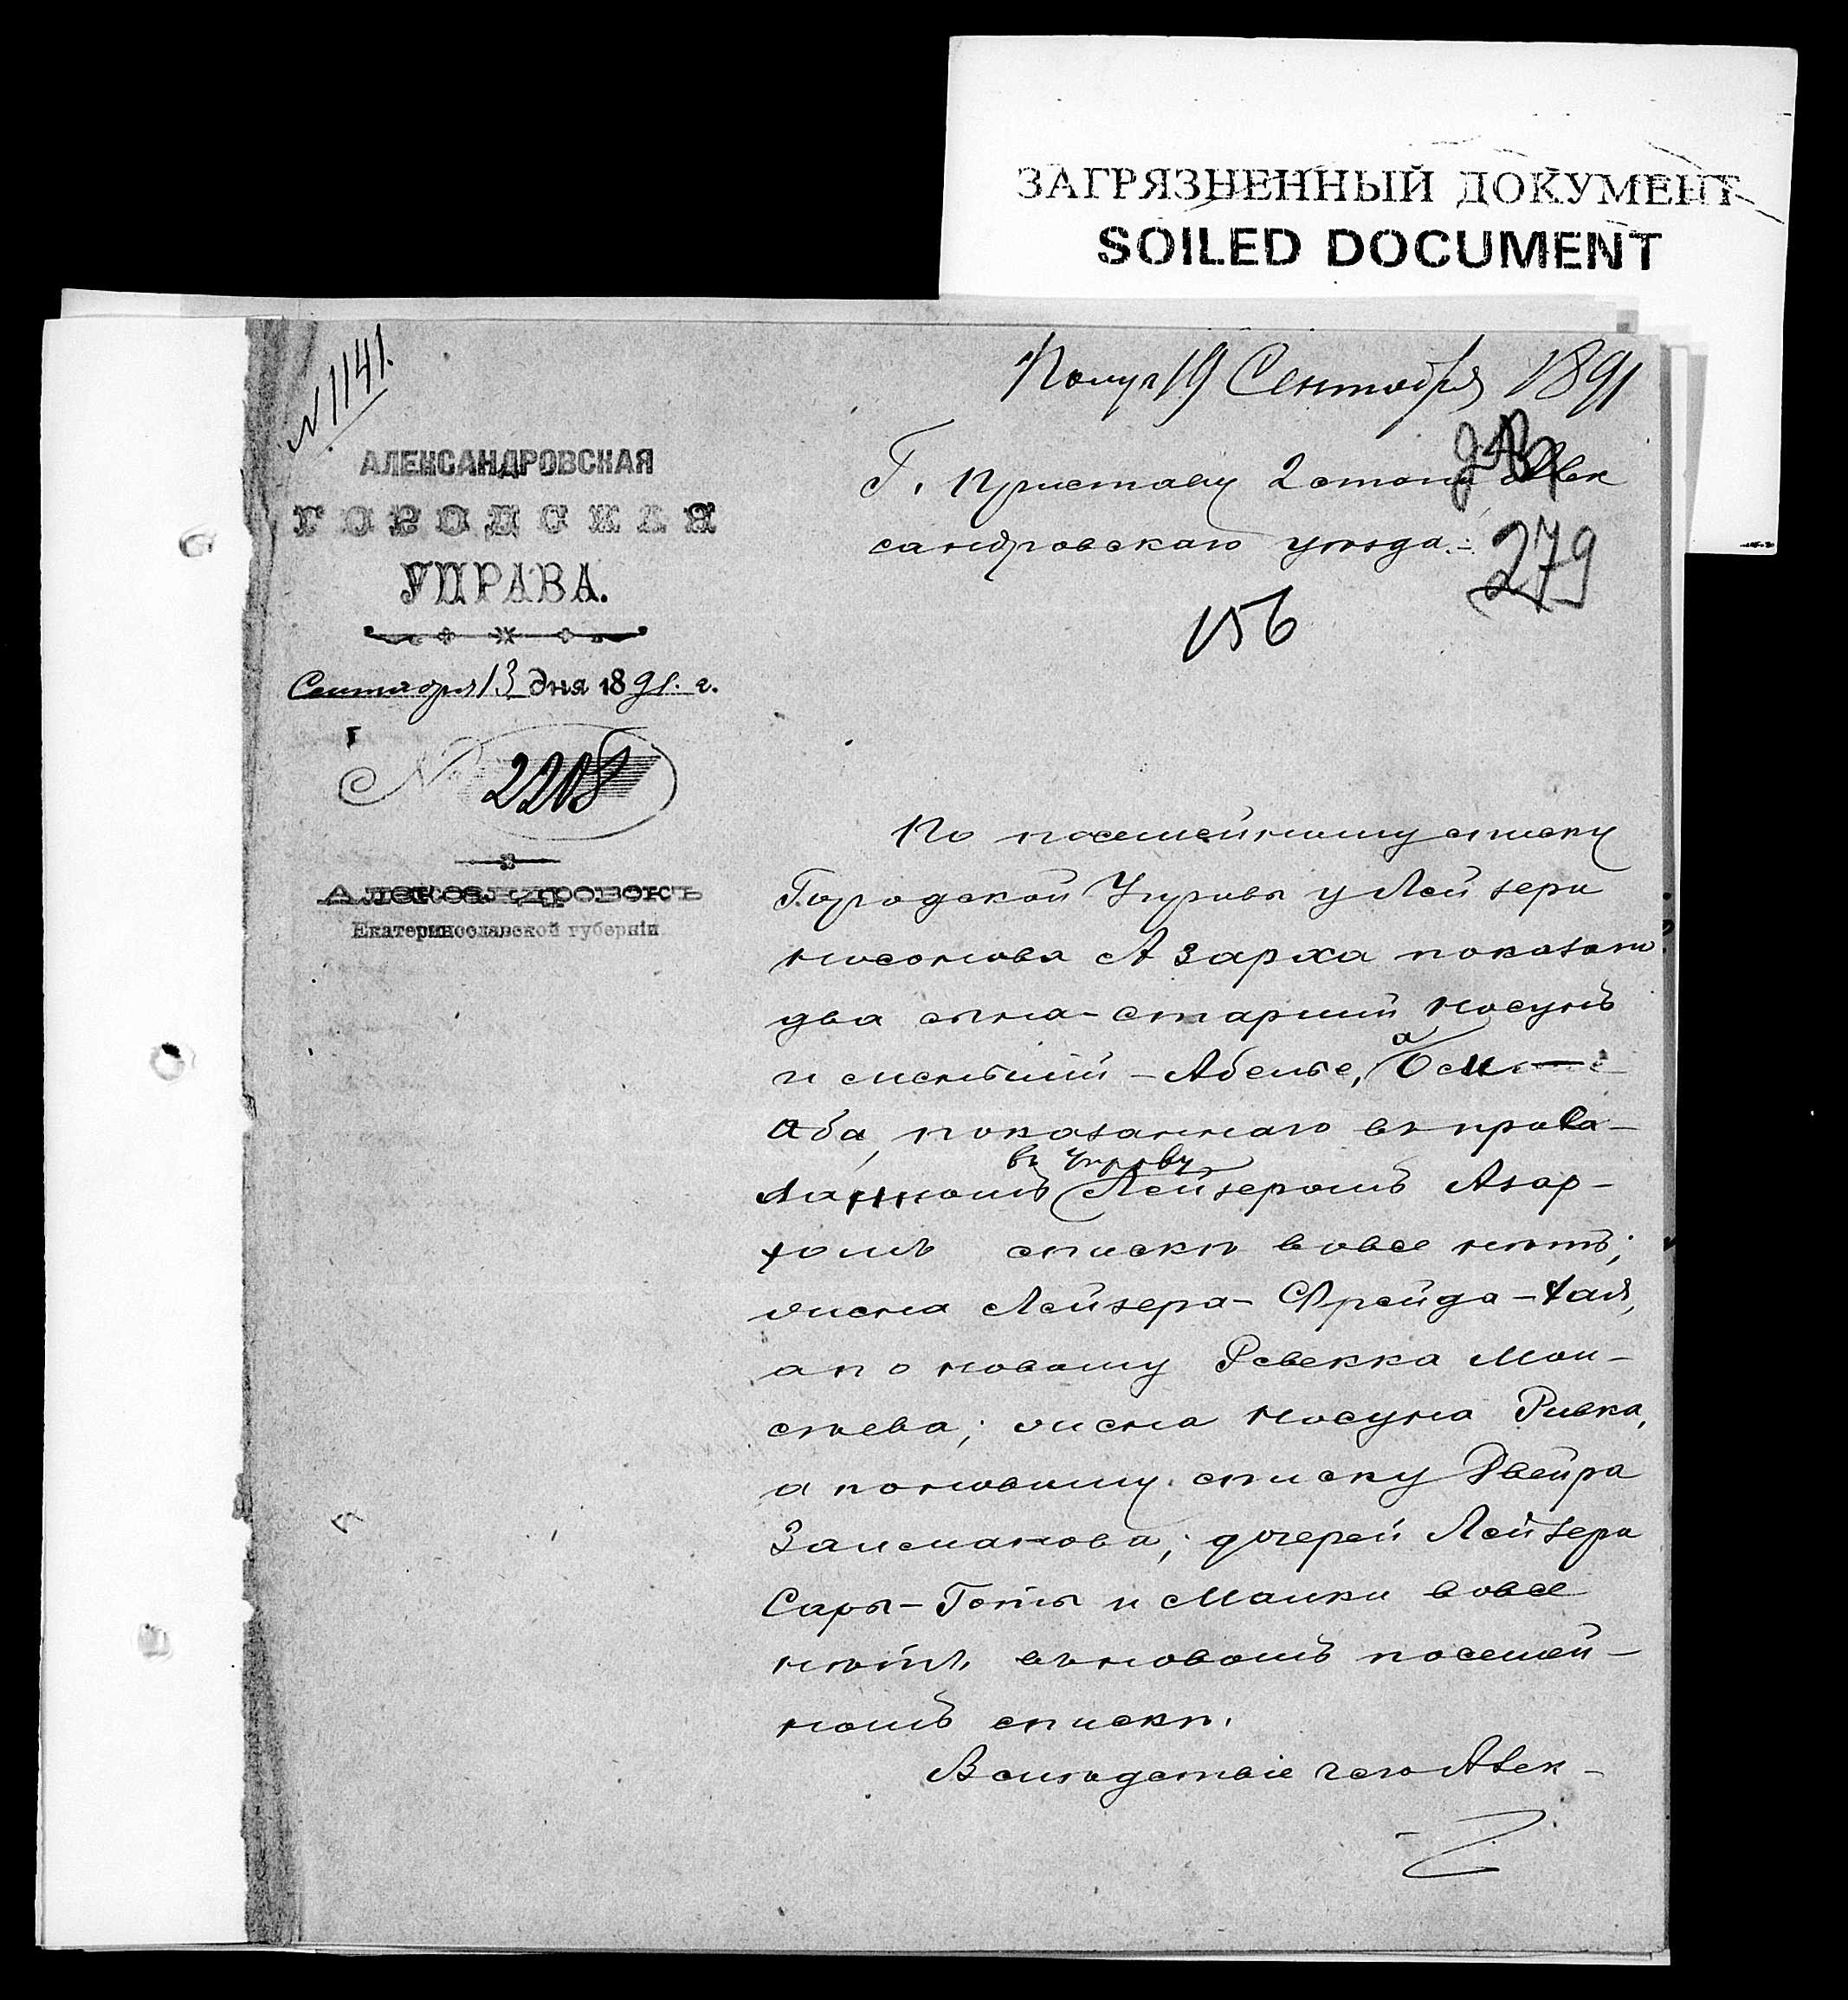 ЗАГРЯЗНЕННЫЙ ДОКУМЕНТ
SOILED DOCUMENT
№ 1141.
Получ 19 Сентября 1891
АЛЕКСАНДРОВСКАЯ
ГОРОДСКАЯ
УПРАВА.
Сентября 13 дня 1891. г.
№ 2208
АЛЕКСАНДРОВСКЪ
Екатеринославской губерніи
Г. Приставу 2 стана Алек
сандровскаго уѣзда.
279
156
По посемейному списку
Городской Управы у Лейзера
Носонова Азарха показано
два сына - старшій Носунъ
и меньшій - Абелье, а
Аба, показаннаго въ предъ-
въ Управу
Лейзеромъ Азар-
хомъ спискѣ вовсе нѣтъ;
жена Лейзера - Фрейда - Хая,
а по новому Ревекка Мои-
сѣева; жена Носуна Ривка,
а по новому списку Двейра
Залманова; дочерей Лейзера
Сары - Готы и Малки вовсе
нѣтъ въ новомъ посемей-
номъ спискѣ.
Вслѣдствіе чего Алек-